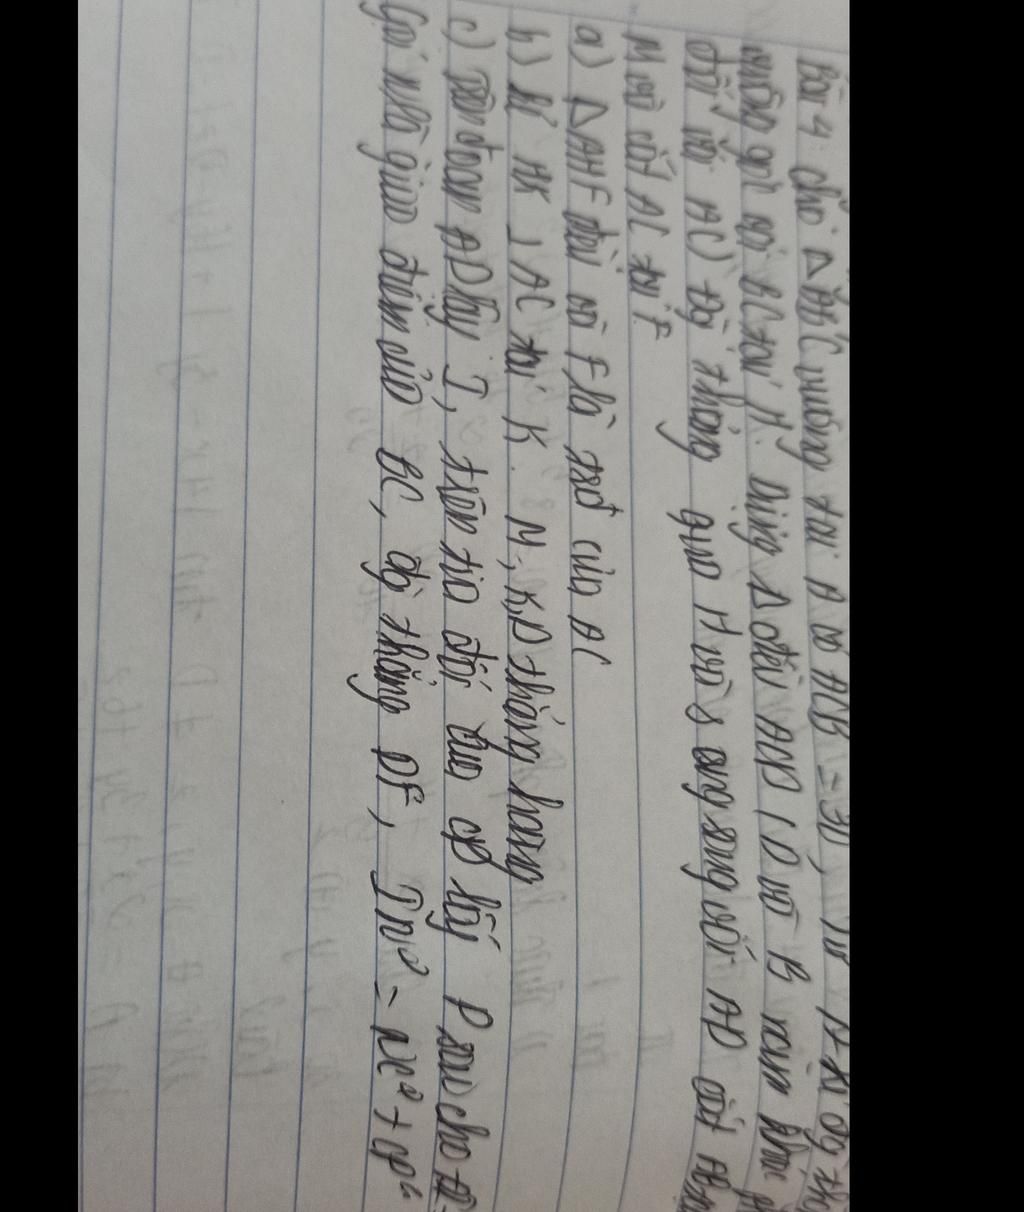 Bài 4: cho Δ ABC vuông tại A có ACB = 30, Từ A kẻ đg
vuông góc với BC tại H. Dựng Δ đều ACD (D và B nằm khác
đối với AC) Đg thẳng qua H và song song với AD cắt AB
M và cắt AC tại F
a) Δ AHF đều và F là trđ của AC
b) kẻ HK ⊥ AC tại K. M, K, D thẳng hàng
c) Trên đoạn AD lấy I, trên tia đối của CD lấy P sao cho
Gọi N là giao điểm của BC, đg thẳng DF, IN² = NC² + CP²